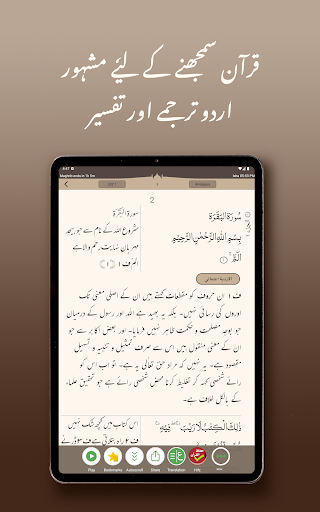 قرآن سمجھنے کے لیٔے مشہور
اردو ترجمے اور تفسیر
2
سُوۡرَةُ الْبَقَرَة
بِسۡمِ اللهِ الرَّحۡمٰنِ الرَّحِيۡمِ
الٓمّٓ ۚ‏
سورۃ البَقَرَة
شروع اللہ کے نام سے جو بیحد
مہربان نہایت رحم والا ہے
الم ف ۱ (۱)
ف ۱ ان حروف کو مقطعات کہتے ہیں ان کے اصلی معنی تک
اوروں کی رسائی نہیں۔ بلکہ یہ بھید ہے اللہ اور رسول کے درمیان
جو بوجہ مصلحت و حکمت ظاہر نہیں فرمایا۔ اور بعض اکابر سے جو
ان کے معنی منقول ہیں اس سے صرف تمثیل و تنبیہ و تسہیل
مقصود ہے یہ نہیں کہ مراد حق تعالی یہ ہے۔ تو اب اس کو
رائے شخصی کہہ کر تغلیط کرنا محض شخصی رائے ہے جو تحقیق علماء
کے بالکل خلاف ہے۔
ذٰلِكَ الۡڪِتٰبُ لَا رَيۡبَ ۛۚ فِيۡهِ ۛۚ
اس کتاب میں کچھ شک نہیں
Play
Bookmarks
Autoscroll
Share
Translation